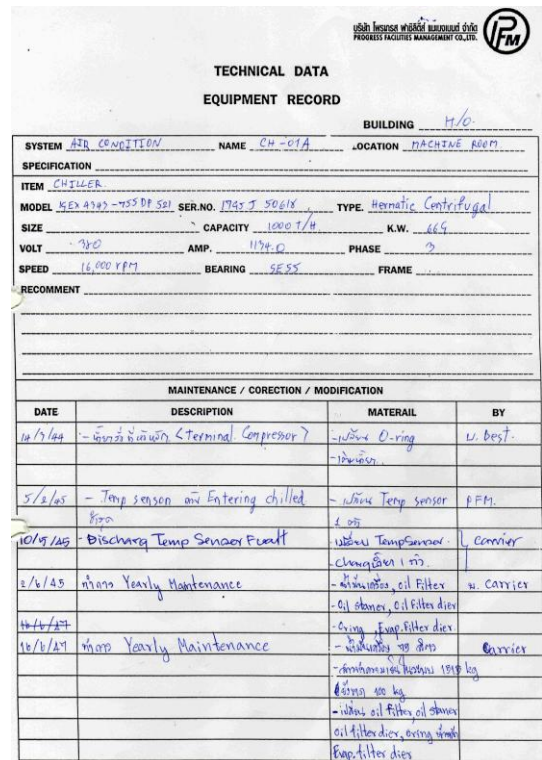 บริษัท โพรเกรส ฟาซิลิตี้ส์ แมเนจเมนท์ จำกัด
PROGRESS FACILITIES MANAGEMENT CO.,LTD.
PFM
TECHNICAL DATA
EQUIPMENT RECORD
BUILDING H/O.
SYSTEM AIR CONDITION NAME CH-01A LOCATION MACHINE ROOM
SPECIFICATION
ITEM CHILLER.
MODEL SER.NO. 1745 J 50618 TYPE. Hermatic Centrifugal
SIZE CAPACITY 1000 T/H K.W. 669
VOLT 380 AMP. 1134.0 PHASE 3
SPEED 16,000 rpm BEARING SESS FRAME
RECOMMENT
MAINTENANCE / CORECTION / MODIFICATION
DATE DESCRIPTION MATERAIL BY
14/7/44 (Terminal. Compressor) - เปลี่ยน O-ring บ. Best.
5/2/45 - Temp sensor Entering chilled - เปลี่ยน Temp sensor PFM.
ชำรุด 1 ตัว
10/5/45 - Discharg Temp Sensor Fuallt เปลี่ยน Temp Sensor. Carrier
- Charg 1 ตัว.
2/6/45 ทำการ Yearly Maintenance - น้ำมันเครื่อง, oil Filter บ. Carrier
- Oil staner, Oil Filter dier
16/6/47 - Oring, Evap. Filter dier.
16/6/47 ทำการ Yearly Maintenance - น้ำมันเครื่อง Carrier
kg
100 kg
- เปลี่ยน oil filter, oil staner
oil filter dier, oring
Evap. filter dier